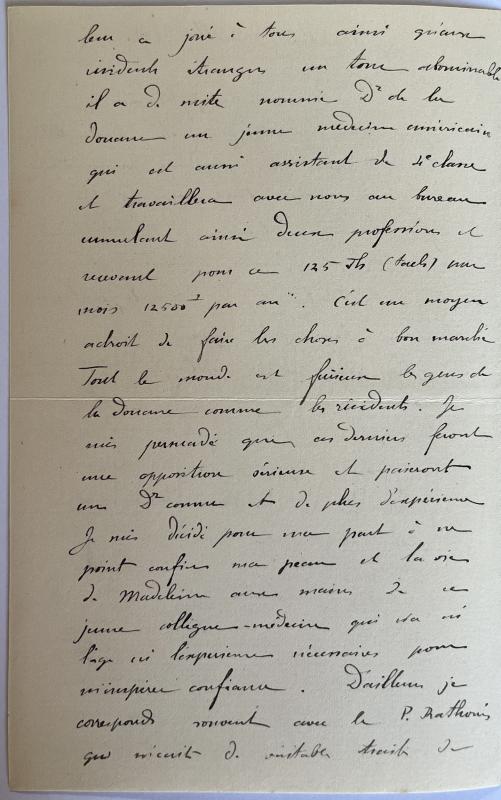 leur a joué à tous ainsi qu'aux
résidents étrangers un tour abominable
il a de suite nommé Dr de la
douane un jeune médecin américain
qui est aussi assistant de 4e classe
et travaillera avec nous au bureau
cumulant ainsi deux professions et
recevant pour ce 125 Th (taels) un
mois 12500 f par an. C'est un moyen
adroit de faire les choses à bon marché
Tout le monde est furieux les gens de
la douane comme les résidents. Je
suis persuadé que ces derniers feront
une opposition sérieuse et paieront
un Dr connu et de plus d'expérience
Je suis décidé pour ma part à ne
point confier ma peau et la vie
de Madeleine aux mains de ce
jeune collègue-médecin qui n'a ni
l'âge ni l'expérience nécessaires pour
m'inspirer confiance. D'ailleurs je
corresponds souvent avec le P. Rathouis
qui m'écrit de véritables traités de